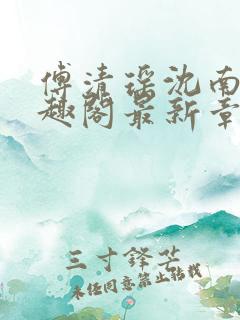 傅清瑶沈南
趣阁最新章
三寸锋芒
未经同意禁止转载